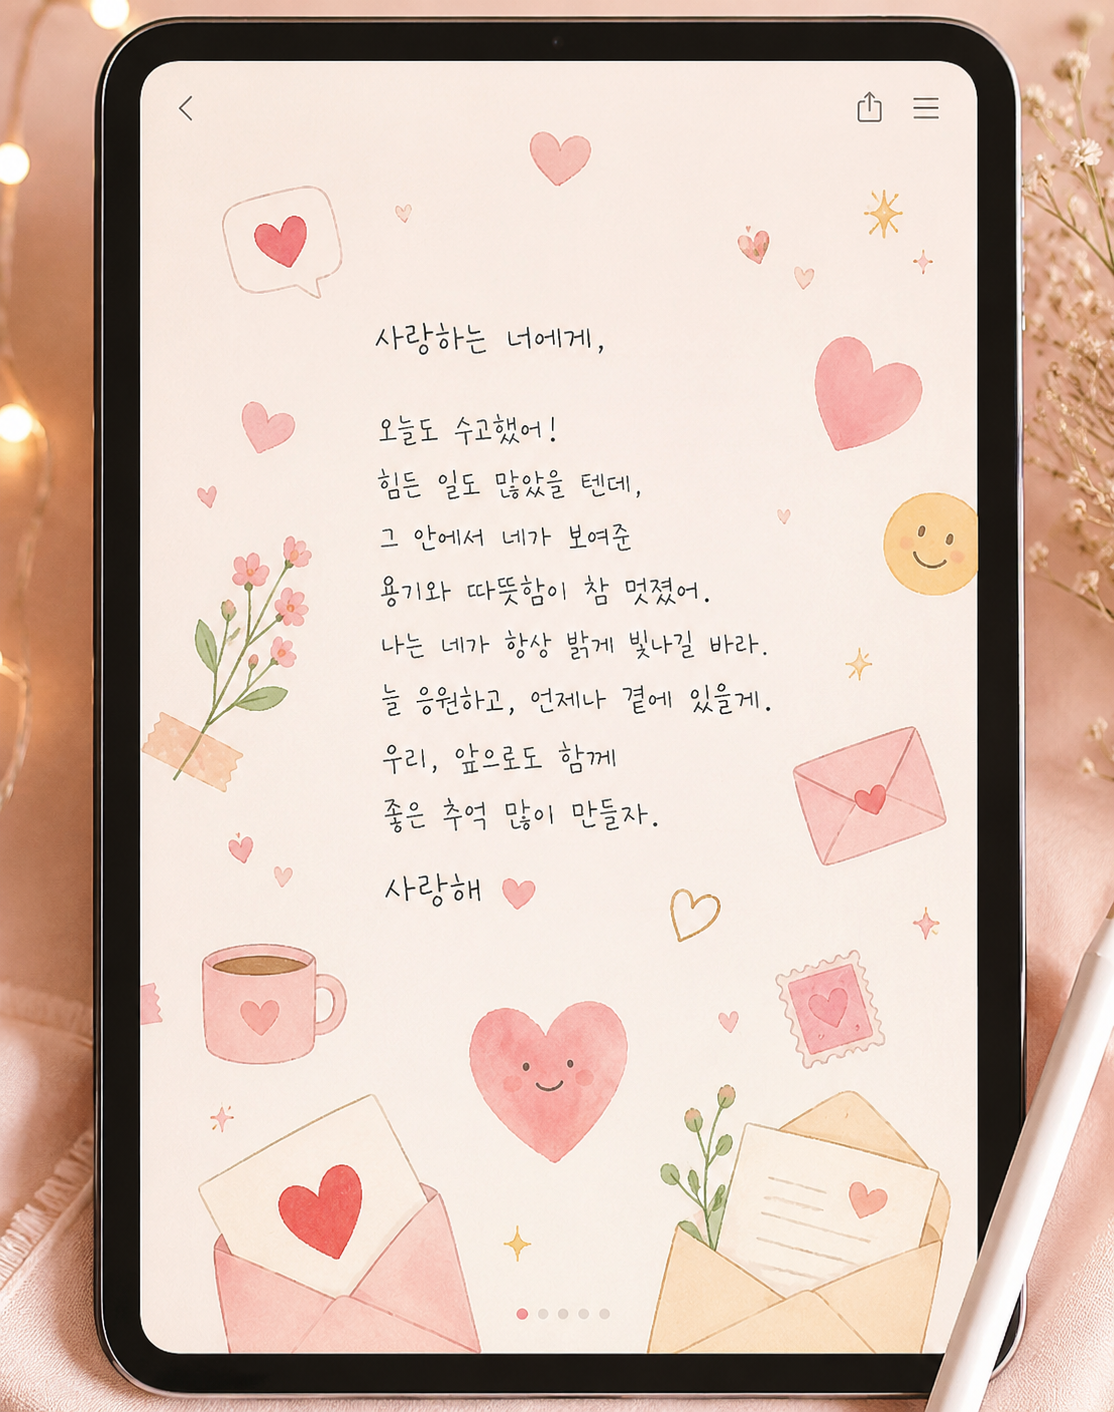 사랑하는 너에게,
오늘도 수고했어!
힘든 일도 많았을 텐데,
그 안에서 네가 보여준
용기와 따뜻함이 참 멋졌어.
나는 네가 항상 밝게 빛나길 바라.
늘 응원하고, 언제나 곁에 있을게.
우리, 앞으로도 함께
좋은 추억 많이 만들자.
사랑해